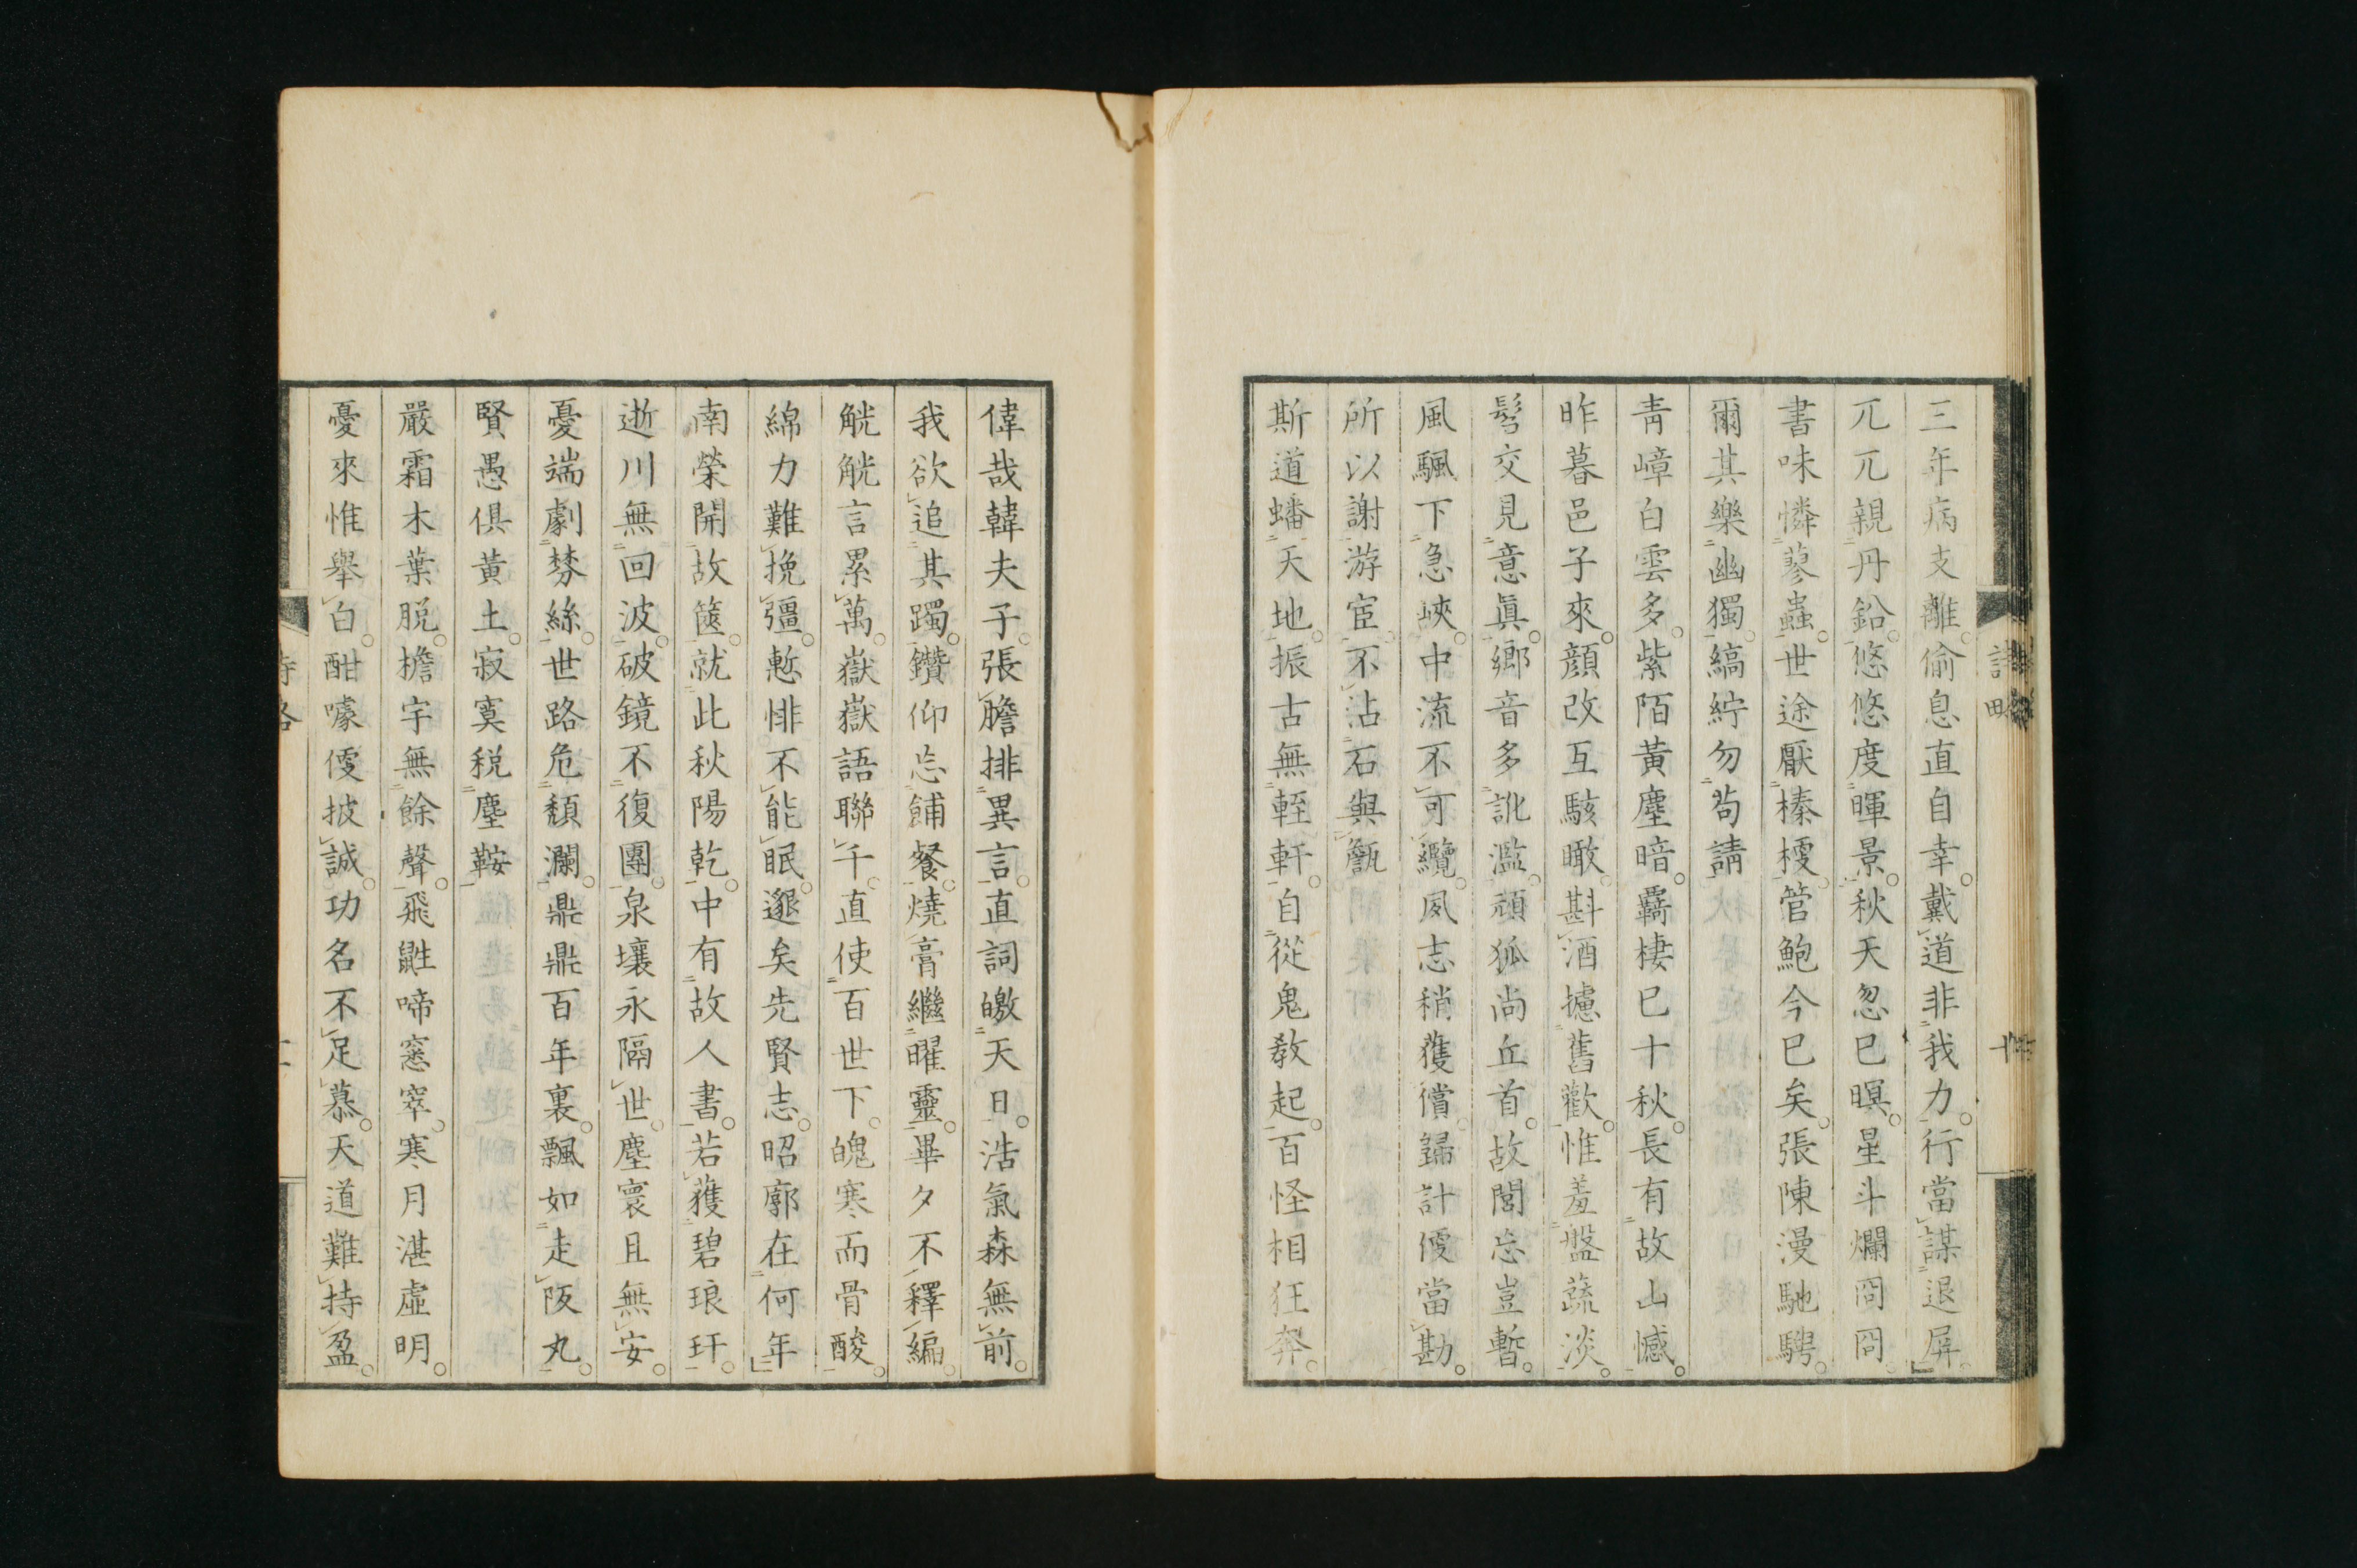 三年病支離。偷息直自幸。戴道非我力。行當謀退屏。
兀兀親丹鉛。悠悠度暉景。秋天忽已暝。星斗爛冏冏。
書味憐蓼蟲。世途厭榛梗。管鮑今已矣。張陳漫馳騁。
爾其樂幽獨。縞紵勿苟請
青嶂白雲多。紫陌黃塵暗。羇棲已十秋。長有故山憾。
昨暮邑子來。顏改互駭瞰。斟酒攄舊歡。惟羞盤蔬淡。
髩交見意眞。鄉音多訛濫。頑狐尚丘首。故閭忘豈暫。
風颿下急峽。中流不可纜。夙志稍獲償。歸計便當勘。
所以謝游宦。不沾石與甔
斯道蟠天地。振古無輊軒。自從鬼教起。百怪相狂奔。
詩略
偉哉韓夫子。張膽排異言。直詞皦天日。浩氣森無前。
我欲追其躅。鑽仰忘餔餐。燒膏繼曜靈。畢夕不釋編。
觥觥言累萬。嶽嶽語聯千。直使百世下。魄寒而骨酸。
綿力難挽彊。慙悱不能眠。遯矣先賢志。昭廓在何年
南榮開故篋。就此秋陽乾。中有故人書。若獲碧琅玕。
逝川無回波。破鏡不復團。泉壤永隔世。塵寰且無安。
憂端劇棼絲。世路危頹瀾。鼎鼎百年裏。飄如走阪丸。
賢愚俱黃土。寂寞税塵鞍
嚴霜木葉脱。檐宇無餘聲。飛鼪啼窓窣。寒月湛虛明。
憂來惟舉白。酣嚎便披誠。功名不足慕。天道難持盈。